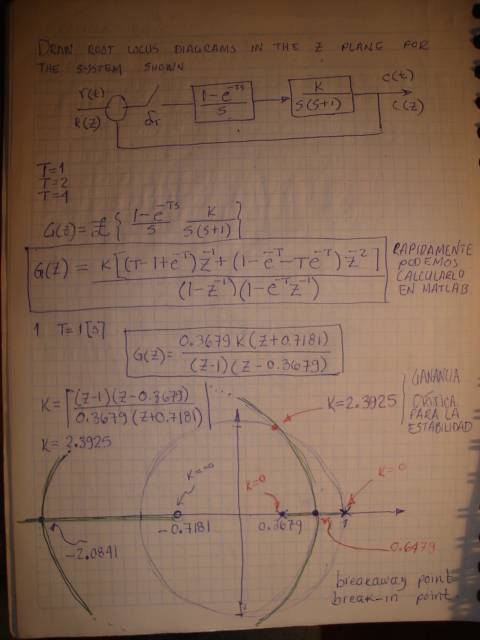 DRAW ROOT LOCUS DIAGRAMS IN THE Z PLANE FOR
THE SYSTEM SHOWN
r(t)
R(Z)
δT
1-e^-TS / S
K / S(S+1)
C(t)
C(Z)
T=1
T=2
T=4
G(Z) = Z { 1-e^-TS / S K / S(S+1) }
G(Z) = K[(T-1+e^-T)Z^-1 + (1-e^-T-Te^-T)Z^-2] / (1-Z^-1)(1-e^-T Z^-1)
RAPIDAMENTE
PODEMOS
CALCULARLO
EN MATLAB.
1 T=1[s]
G(Z) = 0.3679 K(Z+0.7181) / (Z-1)(Z-0.3679)
K= | (Z-1)(Z-0.3679) / 0.3679(Z+0.7181) |
K=2.3925
GANANCIA
CRÍTICA
PARA LA
ESTABILIDAD
K= 2.3925
K=∞
K=0
K=0
-2.0841
-0.7181
0.3679
1
0.6479
breakaway point
break-in point.